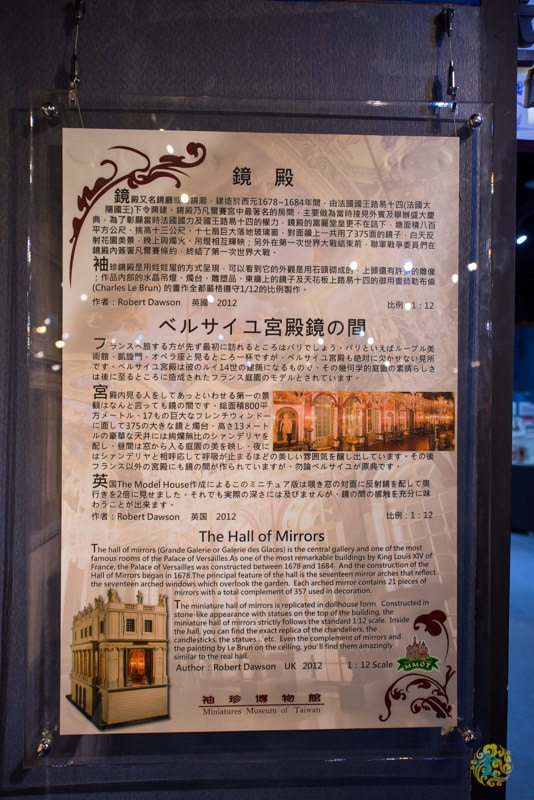 鏡 殿
鏡殿又名鏡廳或 鏡廊，建造於西元1678~1684年間，由法國國王路易十四(法國太
陽國王)下令興建，鏡殿乃凡爾賽宮中最著名的房間，主要做為當時接見外賓及舉辦盛大慶
典，為了彰顯當時法國國力及國王路易十四的權力，鏡殿的富麗堂皇更不在話下，總面積八百
平方公尺，挑高十三公尺，十七扇巨大落地玻璃窗，對面牆上一共用了375面的鏡子，白天反
射花園美景，晚上與燭火、吊燈相互輝映；另外在第一次世界大戰結束前，聯軍戰爭委員們在
鏡殿內簽署凡爾賽條約，終結了第一次世界大戰。
袖珍鏡殿是用娃娃屋的方式呈現，可以看到它的外觀是用石頭砌成的，上頭還有許多的雕像
；作品內部的水晶吊燈、燭台、雕塑品、東牆上的鏡子及天花板上路易十四的御用畫師勒布倫
(Charles Le Brun) 的畫作全都嚴格遵守1/12的比例製作。
作者：Robert Dawson 英國 2012 比例：1：12
ベルサイユ宮殿鏡の間
フランスへ旅する方が先ず最初に訪れるところはパリでしょう。パリといえばルーブル美
術館、凱旋門、オペラ座と見るところ一杯ですが、ベルサイユ宮殿も絶対に欠かせない見所
です。ベルサイユ宮殿は彼のルイ14世の建築になるもので、その幾何学的庭園の素晴らしさ
は後に至るところに造成されたフランス庭園のモデルとされています。
宮殿内見る人をしてあっといわせる第一の景
観はなんと言っても鏡の間です。総面積800平
方メートル、17もの巨大なフレンチウィンドー
に面して375の大きな鏡と燭台、高さ13メート
ルの豪華な天井には絢爛無比のシャンデリヤを
配し、昼間は窓から入る庭園の美を映し、夜に
はシャンデリヤと相呼応して呼吸が止まるほどの美しい雰囲気を醸し出しています。その後
フランス以外の宮殿にも鏡の間が作られていますが、勿論ベルサイユが原典です。
英国The Model House作成によるこのミニチュア版は覗き窓の対面に反射鏡を配して奥
行きを2倍に見せました。それでも実際の深さには及びませんが、鏡の間の感触を充分に味
わうことが出来ます。
作者：Robert Dawson 英国 2012 比例：1：12
The Hall of Mirrors
The hall of mirrors (Grande Galerie or Galerie des Glaces) is the central gallery and one of the most
famous rooms of the Palace of Versailles.As one of the most remarkable buildings by King Louis XIV of
France, the Palace of Versailles was constructed between 1678 and 1684. And the construction of the
Hall of Mirrors began in 1678.The principal feature of the hall is the seventeen mirror arches that reflect
the seventeen arched windows which overlook the garden. Each arched mirror contains 21 pieces of
mirrors with a total complement of 357 used in decoration.
The miniature hall of mirrors is replicated in dollhouse form. Constructed in
stone-like appearance with statues on the top of the building, the
miniature hall of mirrors strictly follows the standard 1:12 scale. Inside
the hall, you can find the exact replica of the chandeliers, the
candlesticks, the statues... etc. Even the complement of mirrors and
the painting by Le Brun on the ceiling, you'll find them amazingly
similar to the real hall.
Author : Robert Dawson UK 2012 1 : 12 Scale
MMOT
袖珍博物館
Miniatures Museum of Taiwan